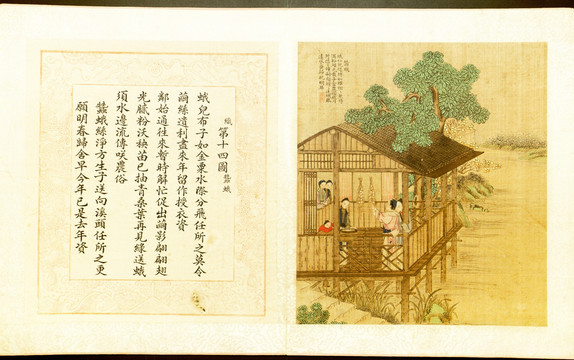 織 第十四圖 蠶蛾
蛾兒布子如金粟水際分飛任所之莫令
繭絲遺利盡來年留作授衣資
鄰始通往來暫時解忙促出繭影翩翩翅
光膩粉沃秧苗已抽青桑葉再見綠送蛾
須水邊流傳咲農俗
蠶蛾絲淨方生子送向溪頭任所之更
願明春歸舍早今年已是去年資
蠶蛾